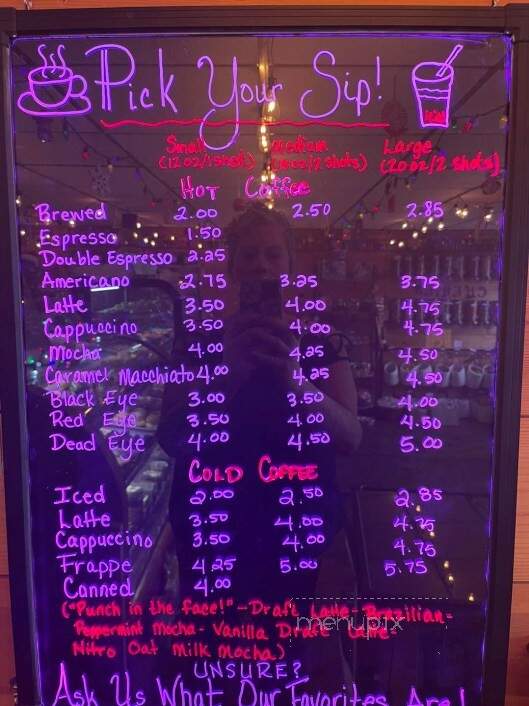 Pick Your Sip!
Small Medium Large
(12oz/1shot) (16oz/2 shots) (20oz/2 shots)
HOT Coffee
Brewed 2.00 2.50 2.85
Espresso 1.50
Double Espresso 2.25
Americano 2.75 3.25 3.75
Latte 3.50 4.00 4.75
Cappuccino 3.50 4.00 4.75
Mocha 4.00 4.25 4.50
Caramel Macchiato 4.00 4.25 4.50
Black Eye 3.00 3.50 4.00
Red Eye 3.50 4.00 4.50
Dead Eye 4.00 4.50 5.00
COLD COFFEE
Iced 2.00 2.50 2.85
Latte 3.50 4.00 4.75
Cappuccino 3.50 4.00 4.75
Frappe 4.25 5.00 5.75
Canned 4.00
("Punch in the face!"-Draft Latte-Brazilian-
Peppermint Mocha-Vanilla Draft Latte-
Nitro Oat Milk Mocha)
menupix
UNSURE?
Ask Us What Our Favorites Are!